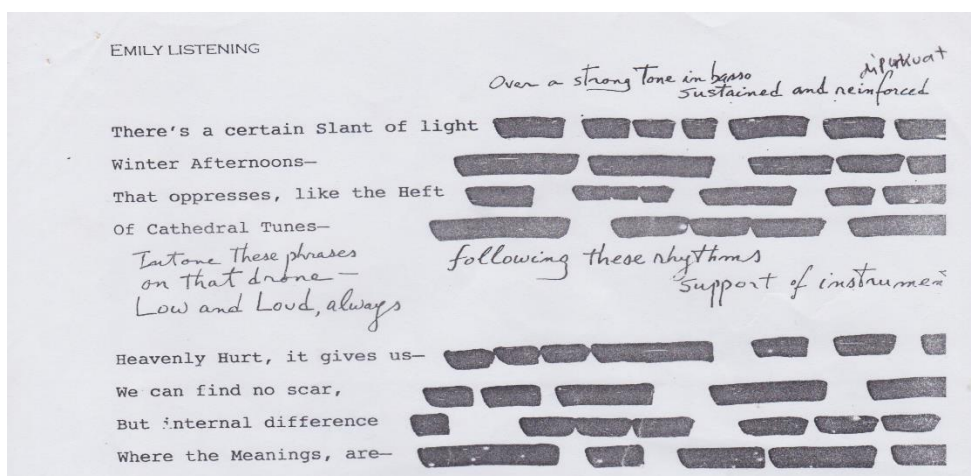 EMILY LISTENING
Over a strong tone in basso
sustained and reinforced
There's a certain Slant of light
Winter Afternoons—
That oppresses, like the Heft
Of Cathedral Tunes—
Intone These phrases
on that drone —
Low and Loud, always
following these rhythms
support of instrumen
Heavenly Hurt, it gives us—
We can find no scar,
But internal difference
Where the Meanings, are—